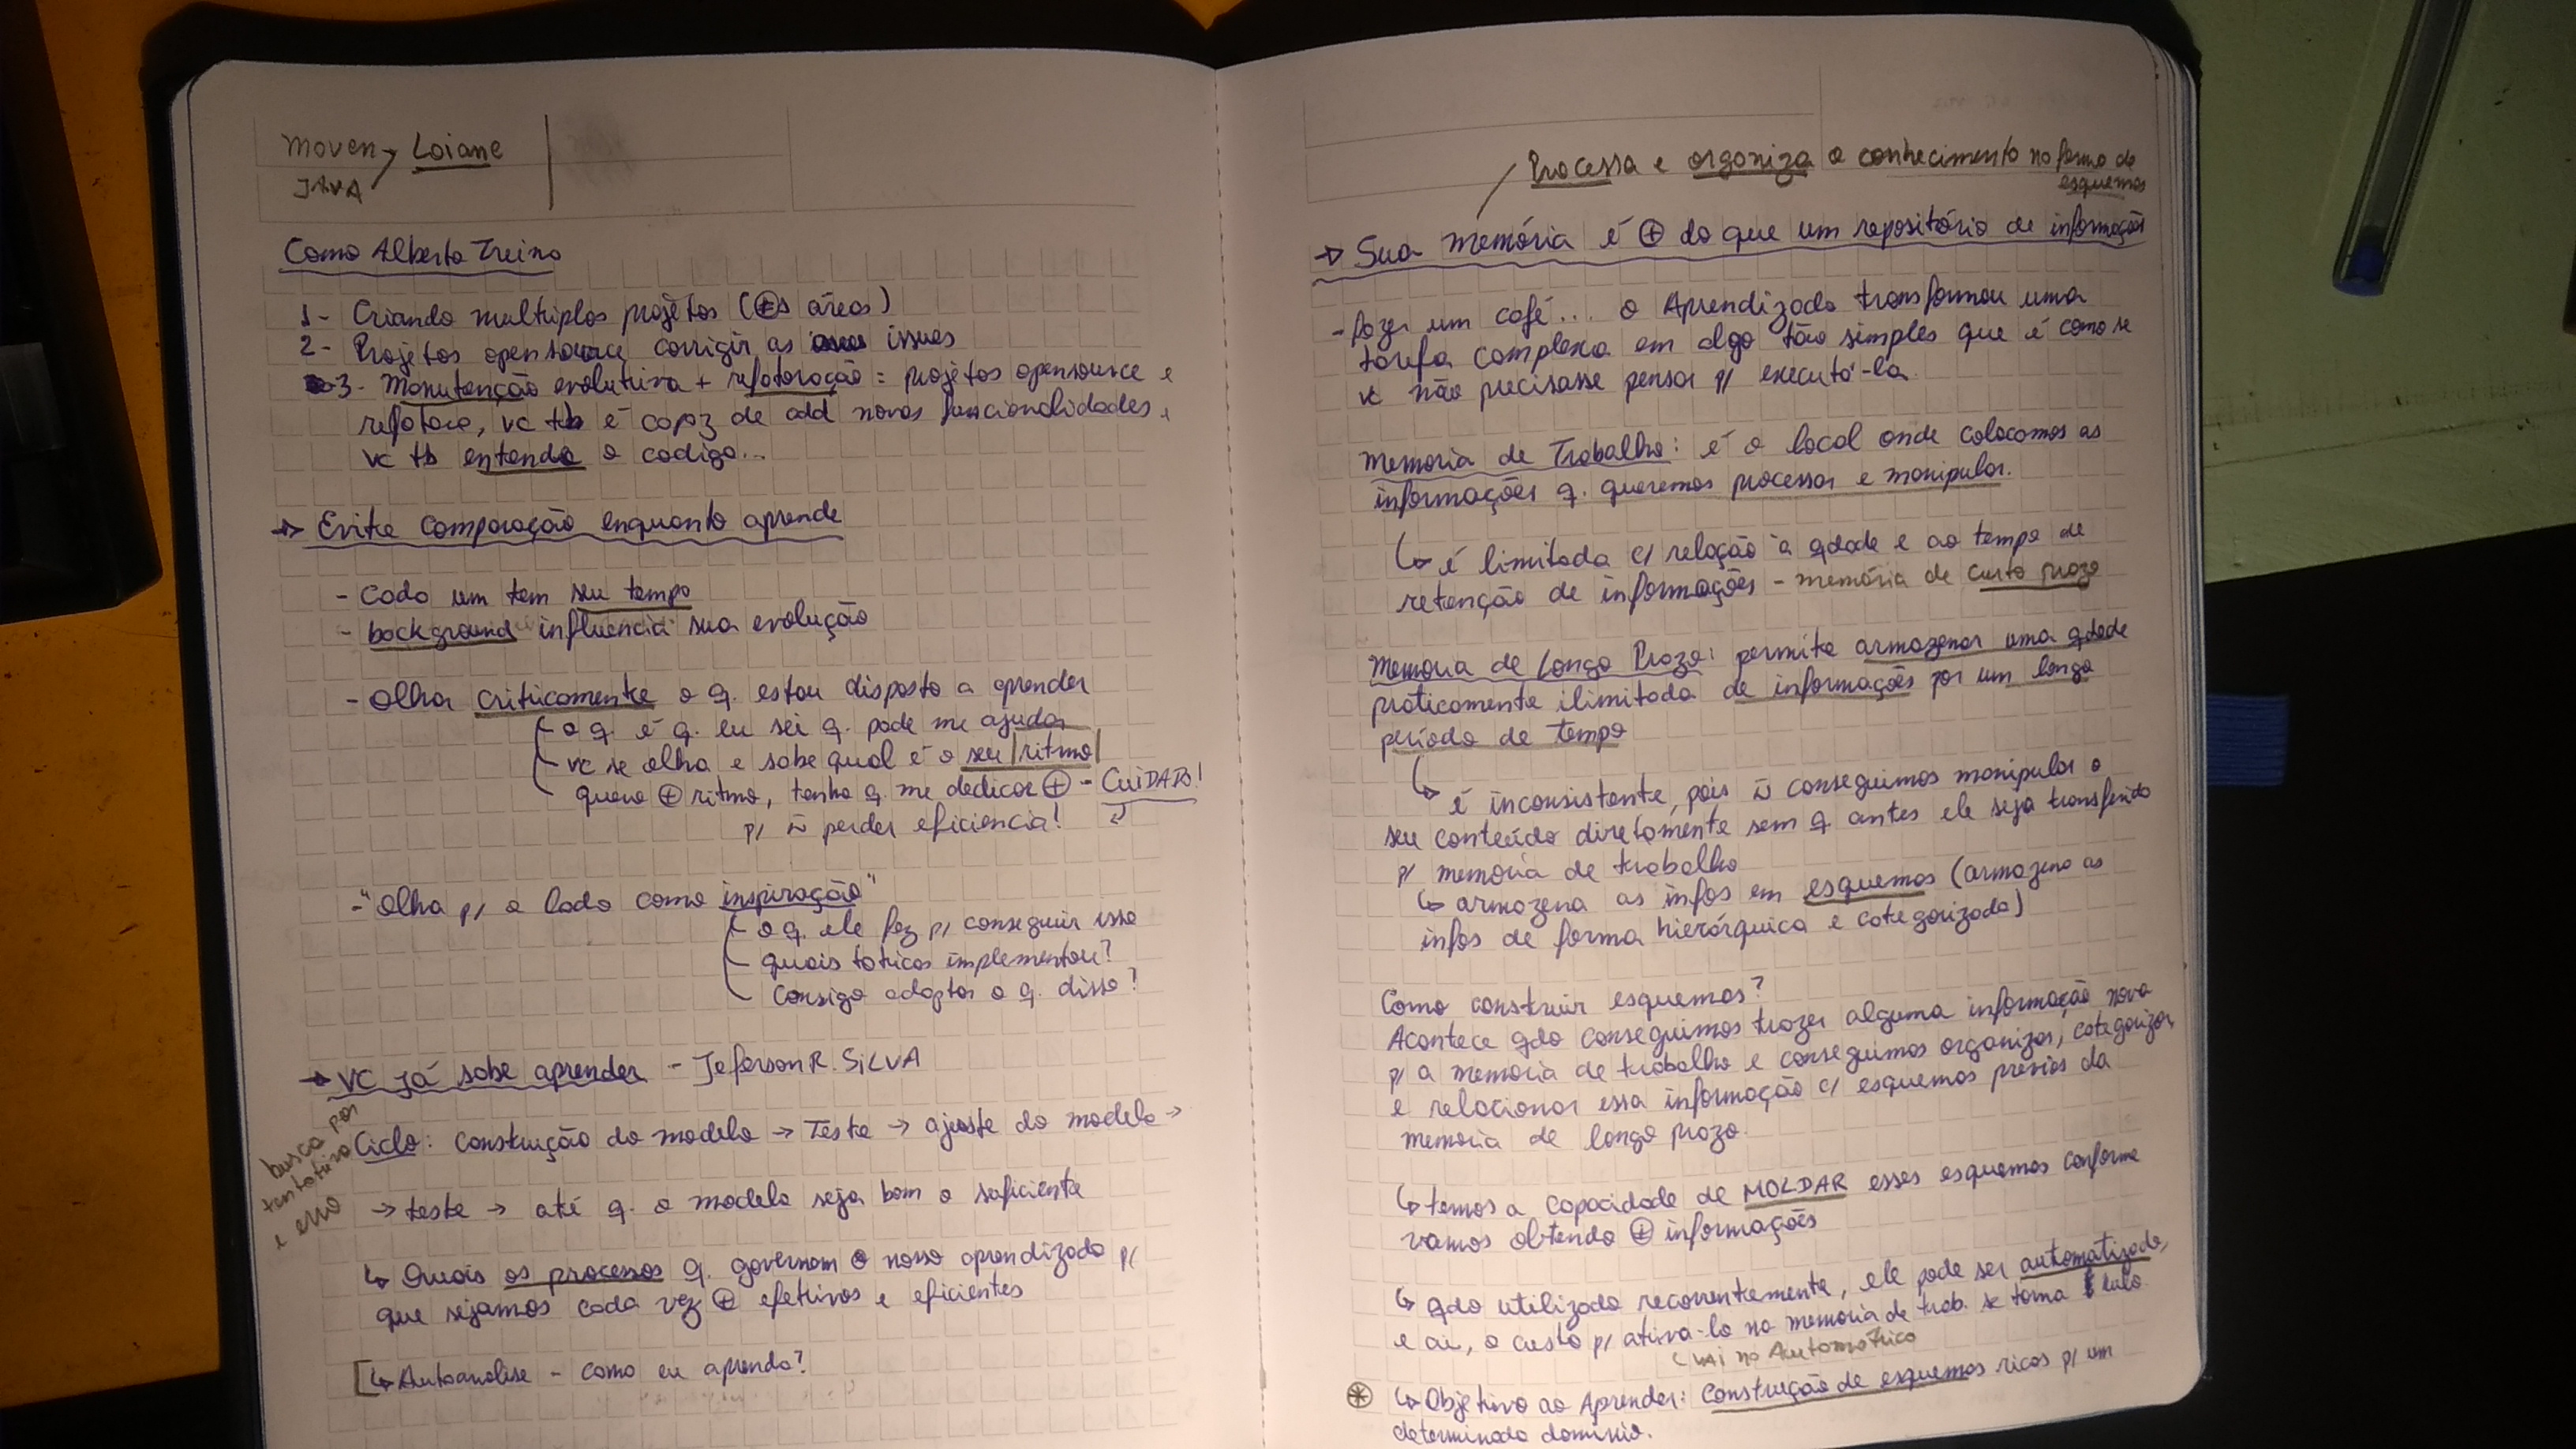 Maven → Loiane
JAVA
Como Alberto Treina
1- Criando multiplos projetos (⊕s áreas)
2- Projetos opensource corrigir as issues
3- Manutenção evolutiva + refatoração = projetos opensource e
refatora, vc tb é capaz de add novas funcionalidades,
vc tb entende o codigo...
→ Evite comparação enquanto aprende
- Cada um tem seu tempo
- background influencia sua evolução
- Olha criticamente o q. estou disposto a aprender
- o q. é q. eu sei q. pode me ajudar
- vc se olha e sabe qual é o seu |ritmo|
quero ⊕ ritmo, tenho q. me dedicar ⊕ - CUIDADO!
p/ ñ perder eficiencia!
- "Olha p/ o lado como inspiração"
- o q. ele fez p/ conseguir isso
- quais taticas implementou?
- Consigo adaptar o q. disso?
→ VC já sabe aprender - Jeferson R. SILVA
busca por
tentativa
e erro
Ciclo: Construção do modelo → Teste → ajuste do modelo →
→ teste → até q. o modelo seja bom o suficiente
↳ Quais os processos q. governam o nosso aprendizado p/
que sejamos cada vez ⊕ efetivos e eficientes
[↳ Autoanalise - como eu aprendo?
Processa e organiza o conhecimento na forma de
esquemas
→ Sua memória é ⊕ do que um repositório de informações
- fazer um café... o Aprendizado transformou uma
tarefa complexa em algo tão simples que é como se
vc não precisasse pensar p/ executá-la
Memoria de Trabalho: é o local onde colocamos as
informações q. queremos processar e manipular.
↳ é limitada c/ relação à qdade e ao tempo de
retenção de informações - memória de curto prazo
Memoria de Longo Prazo: permite armazenar uma qdade
praticamente ilimitada de informações por um longo
período de tempo
↳ é inconsistente, pois ñ conseguimos manipular o
seu conteúdo diretamente sem q antes ele seja transferido
p/ memoria de trabalho
↳ armazena as infos em esquemas (armazena as
infos de forma hierárquica e categorizada)
Como construir esquemas?
Acontece qdo conseguimos trazer alguma informação nova
p/ a memoria de trabalho e conseguimos organizar, categorizar
e relacionar essa informação c/ esquemas prévios da
memoria de longo prazo.
↳ temos a capacidade de MOLDAR esses esquemas conforme
vamos obtendo ⊕ informações
↳ qdo utilizado recorrentemente, ele pode ser automatizado,
e ai, o custo p/ ativa-lo na memoria de trab. se torna nulo
↳ vai no Automático
⊛ ↳ Objetivo ao Aprender: Construção de esquemas ricos p/ um
determinado dominio.